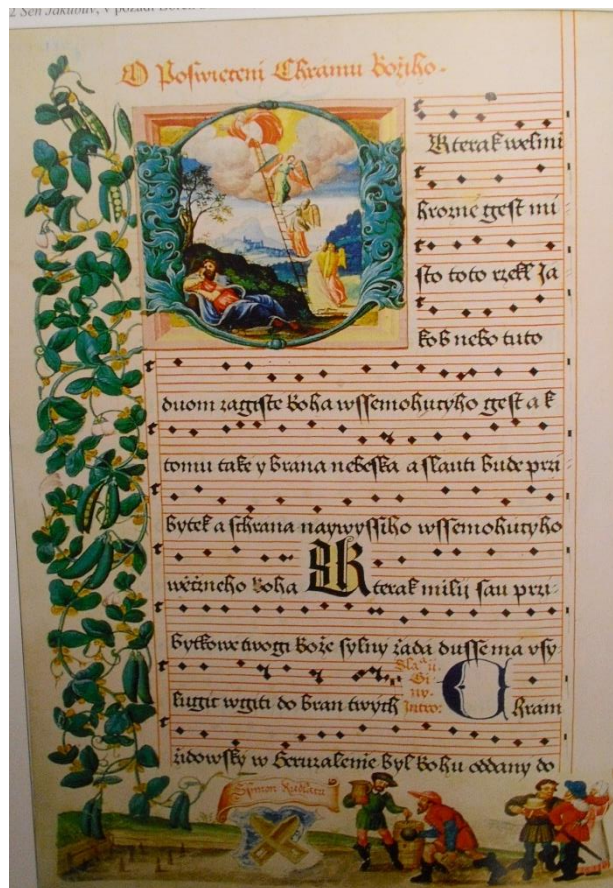 2 Sen Jakubův, v pozadí
O Poswieceni Chramu Božiho.
Kterak welmi
hrozne gest mi-
sto toto rzekl Ja
kob nebo tuto
duom zagiste Boha wssemohucyho gest a k
tomu take y brana nebeska a slauti bude przi
bytek a schrana naywyssiho wssemohucyho
wěčneho Boha Kterak milij sau przi-
bytkowe twogi Bože sylny žada dusse ma vsy-
lugic wgiti do bran twych
Gi-
ny-
Intro:
Chram
židowsky w Geruzaleme byl Bohu oddany do
Ssimon